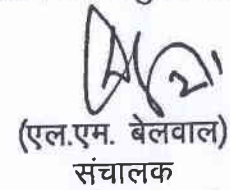 (एल.एम. बेलवाल)
संचालक